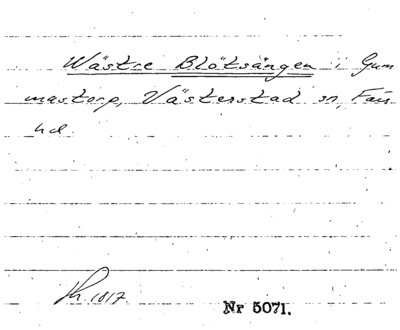 Wästre Blötsängen i Gum
mastorp, Västerstad sn, Färs
hd.
1817
Nr 5071.